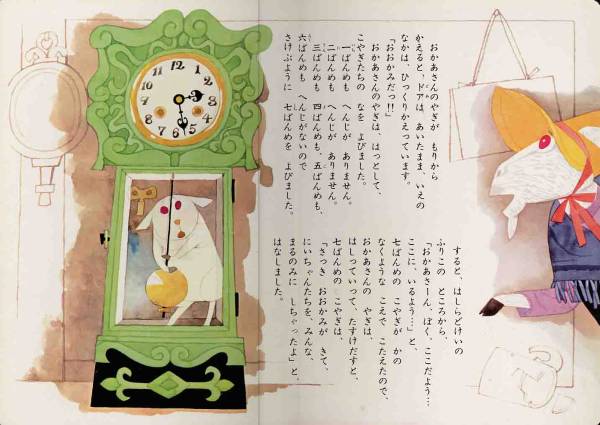 おかあさんのやぎが もりから
かえると、ドアは、あいたまま、いえの
なかは、ひっくりかえっています。
「おおかみだっ!!」
おかあさんのやぎは、はっとして、
こやぎたちの なを よびました。
一ばんめも へんじが ありません。
二ばんめも へんじが ありません。
三ばんめも 四ばんめも、五ばんめも、
六ばんめも へんじがないので
さけぶように 七ばんめを よびました。
すると、はしらどけいの
ふりこの ところから、
「おかあさーん、ぼく、ここだよう…
ここに、いるよう…」と、
七ばんめの こやぎが かの
なくような こえで こたえたので、
おかあさんの やぎは、
はしっていって、たすけだすと、
七ばんめの こやぎは、
「さっき おおかみが きて、
にいちゃんたちを、みんな、
まるのみに しちゃったよ」と、
はなしました。
12
1
2
3
4
5
6
7
8
9
10
11